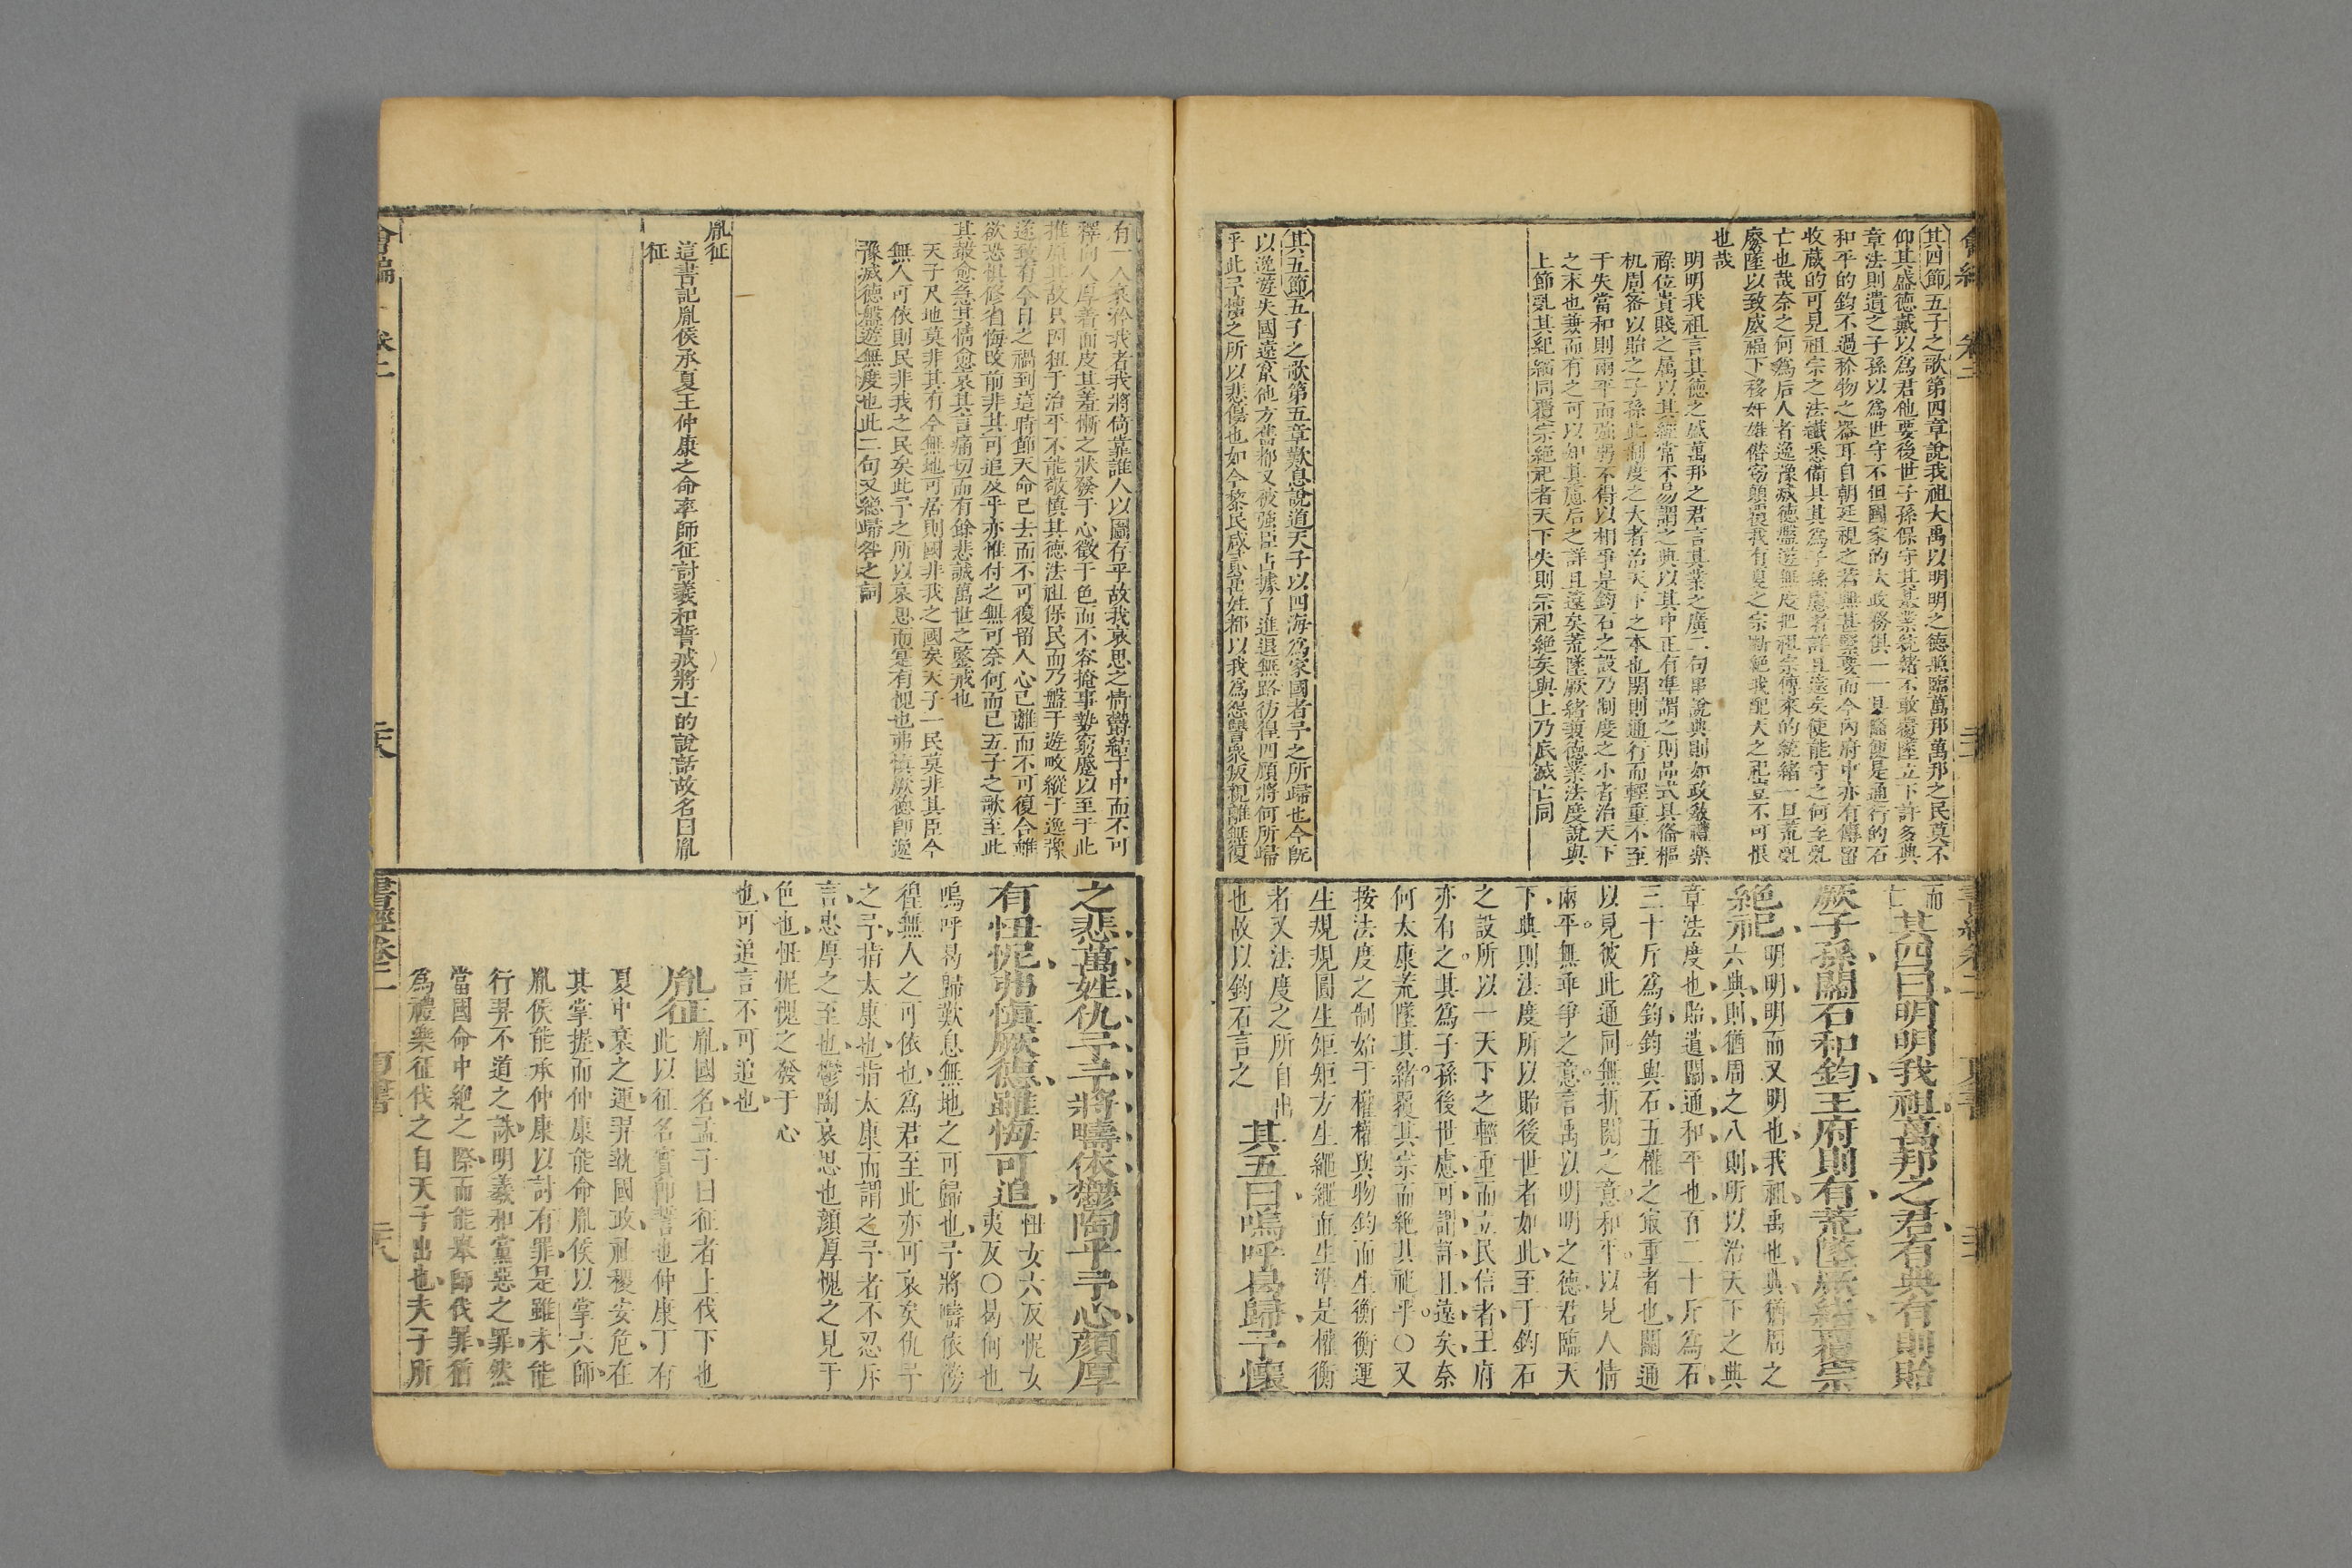 其四節五子之歌第四章說我祖大禹以明明之德照臨萬邦萬邦之民莫不
仰其盛德戴以爲君他要後世子孫保守其基業統緒不敢覆墜立下許多典
章法則遺之子孫以爲世守不但國家的大政務俱一一具
和平的鈞不過秤物之器耳自朝廷視之若無甚緊要而今內府中亦有傳留
收蔵的可見祖宗之法纖悉備具其爲子孫慮者詳且遠矣使能守之何至亂
亡也哉奈之何爲后人者逸豫滅德盤遊無度把祖宗傳來的統緒一旦荒亂
廢墜以致威福下移奸雄僭竊顛覆我有夏之宗斷絕我配天之祀豈不可恨
也哉
明明我祖言其德之盛萬邦之君言其業之廣二句串說典則如政敎禮樂
祿位貴賤之属以其經常不易謂之典以其中正有凖謂之則品式具俻樞
机周宻以貽之子孫此制度之大者治天下之本也関則通行而輕重不至
于失當和則兩平而強弱不得以相爭是鈞石之設乃制度之小者治天下
之末也兼而有之可以知其慮后之詳且遠矣荒墜厥緒兼德業法度說與
上節亂其紀綱同覆宗絕祀者天下失則宗祀絕矣與上乃底滅亡同
其五節五子之歌第五章歎息說道天子以四海爲家國者予之所歸也今既
以逸遊失國遠
乎此予懷之所以悲傷也如今黎民咸貳萬姓都以我爲怨讐衆叛親離無復
而
亡
其四曰明明我祖萬邦之君有典有則貽
厥子孫關石和鈞王府則有荒墜厥緒覆宗
絕祀 明明明而又明也我祖禹也典猶周之
六典則猶周之八則所以治天下之典
章法度也貽遺關通和平也百二十斤爲石
三十斤爲鈞鈞與石五權之最重者也關通
以見彼此通同無折閱之意和平以見人情
兩平無乖爭之意言禹以明明之德君臨天
下典則法度所以貽後世者如此至于鈞石
之設所以一天下之輕重而立民信者王府
亦有之其爲子孫後世慮可謂詳且遠矣奈
何太康荒墜其緒覆其宗而絕其祀乎〇又
按法度之制始于權權與物鈞而生衡衡運
生規規圓生矩矩方生繩繩直生準是權衡
者又法度之所自出
也故以鈞石言之 其五曰嗚呼曷歸予懷
有一人哀矜我者我將倚靠誰人以圖存乎故我哀思之情鬱結于中而不可
釋向人厚着面皮其羞慚之狀發于心徵于色而不容掩事勢窮蹙以至于此
推原其故只因狃于治平不能敬慎其德法祖保民而乃盤于遊畋縱于逸豫
遂致有今日之禍到這時節天命已去而不可復留人心已離而不可復合雖
欲恐懼修省悔改前非其可追及乎亦惟付之無可奈何而已五子之歌至此
其聲愈急其情愈哀其言痛切而有餘悲誠萬世之鑒戒也
天子尺地莫非其有今無地可居則國非我之國矣天子一民莫非其臣今
無人可依則民非我之民矣此予之所以哀思而寔有愧也弗慎厥德即逸
豫滅德盤遊無度也此二句又總歸咎之詞
胤征
這書記胤侯承夏王仲康之命率師征討羲和誓戒將士的說話故名曰胤
征
之悲萬姓仇予予將疇依鬱陶乎予心顏厚
有忸怩弗愼厥德雖悔可追 忸女六反怩女
夷反〇曷何也
嗚呼曷歸歎息無地之可歸也予將疇依徬
徨無人之可依也爲君至此亦可哀矣仇予
之予指太康也指太康而謂之予者不忍斥
言忠厚之至也鬱陶哀思也顏厚愧之見于
色也忸怩愧之發于心
也可追言不可追也
胤征 胤國名孟子曰征者上伐下也
此以征名實卽誓也仲康丁有
夏中衰之運羿執國政社稷安危在
其掌握而仲康能命胤侯以掌六師
胤侯能承仲康以討有罪是雖未能
行羿不道之誅明羲和黨惡之罪然
當國命中絕之際而能舉師伐罪猶
爲禮樂征伐之自天子出也夫子所
會編 卷二 書經卷二